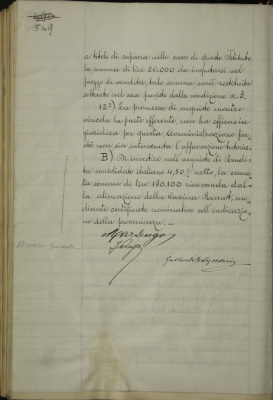 549
a titolo di caparra nelle casse di questo Istituto
la somma di lire 20.000 da imputarsi nel
prezzo di vendita, tale somma sarà restituita
soltanto nel caso previsto dalla condizione n. 3.
12°) La promessa di acquisto mentre
vincola la parte offerente, non ha efficacia
giuridica per questa Amministrazione fin
chè non sia intervenuta l'approvazione tutoria.
B) Di investire nell'acquisto di Rendi-
ta consolidato italiano 4,50% netto, la
somma di lire 130.100 ricavanda dal-
la alienazione della Cascina me-
diante certificato nominativo coll'indicazio-
ne della provenienza. —